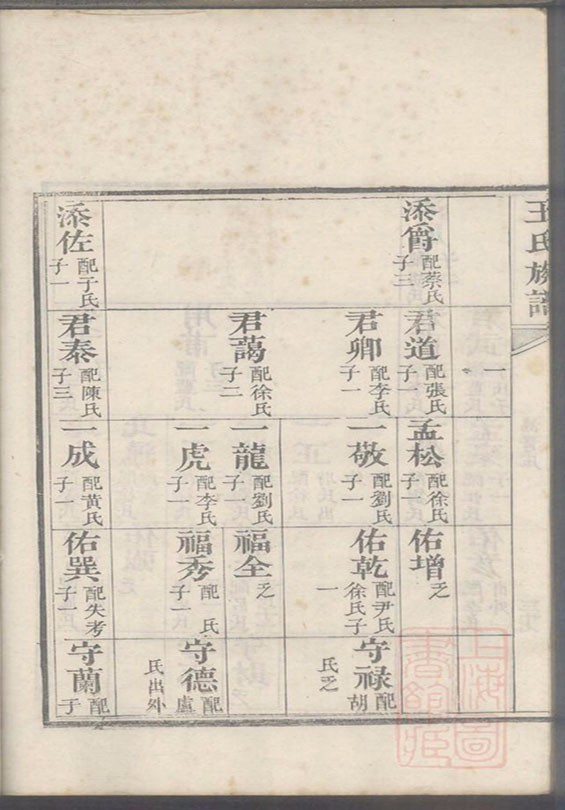 王氏族譜
添爵 配蔡氏 子三
君道 配張氏 子一
孟松 配徐氏 子一
佑增 乏
君卿 配李氏 子一
一敬 配劉氏 子一
佑乾 配尹氏 徐氏子一
守禄 配胡氏乏
君藹 配徐氏 子二
一龍 配劉氏 子一
福全 乏
一虎 配李氏 子一
福秀 配 氏 子一
守德 配盧氏出外
添佐 配于氏 子一
君泰 配陳氏 子三
一成 配黄氏 子一
佑巽 配失考 子一
守蘭 配于
上海圖書館藏